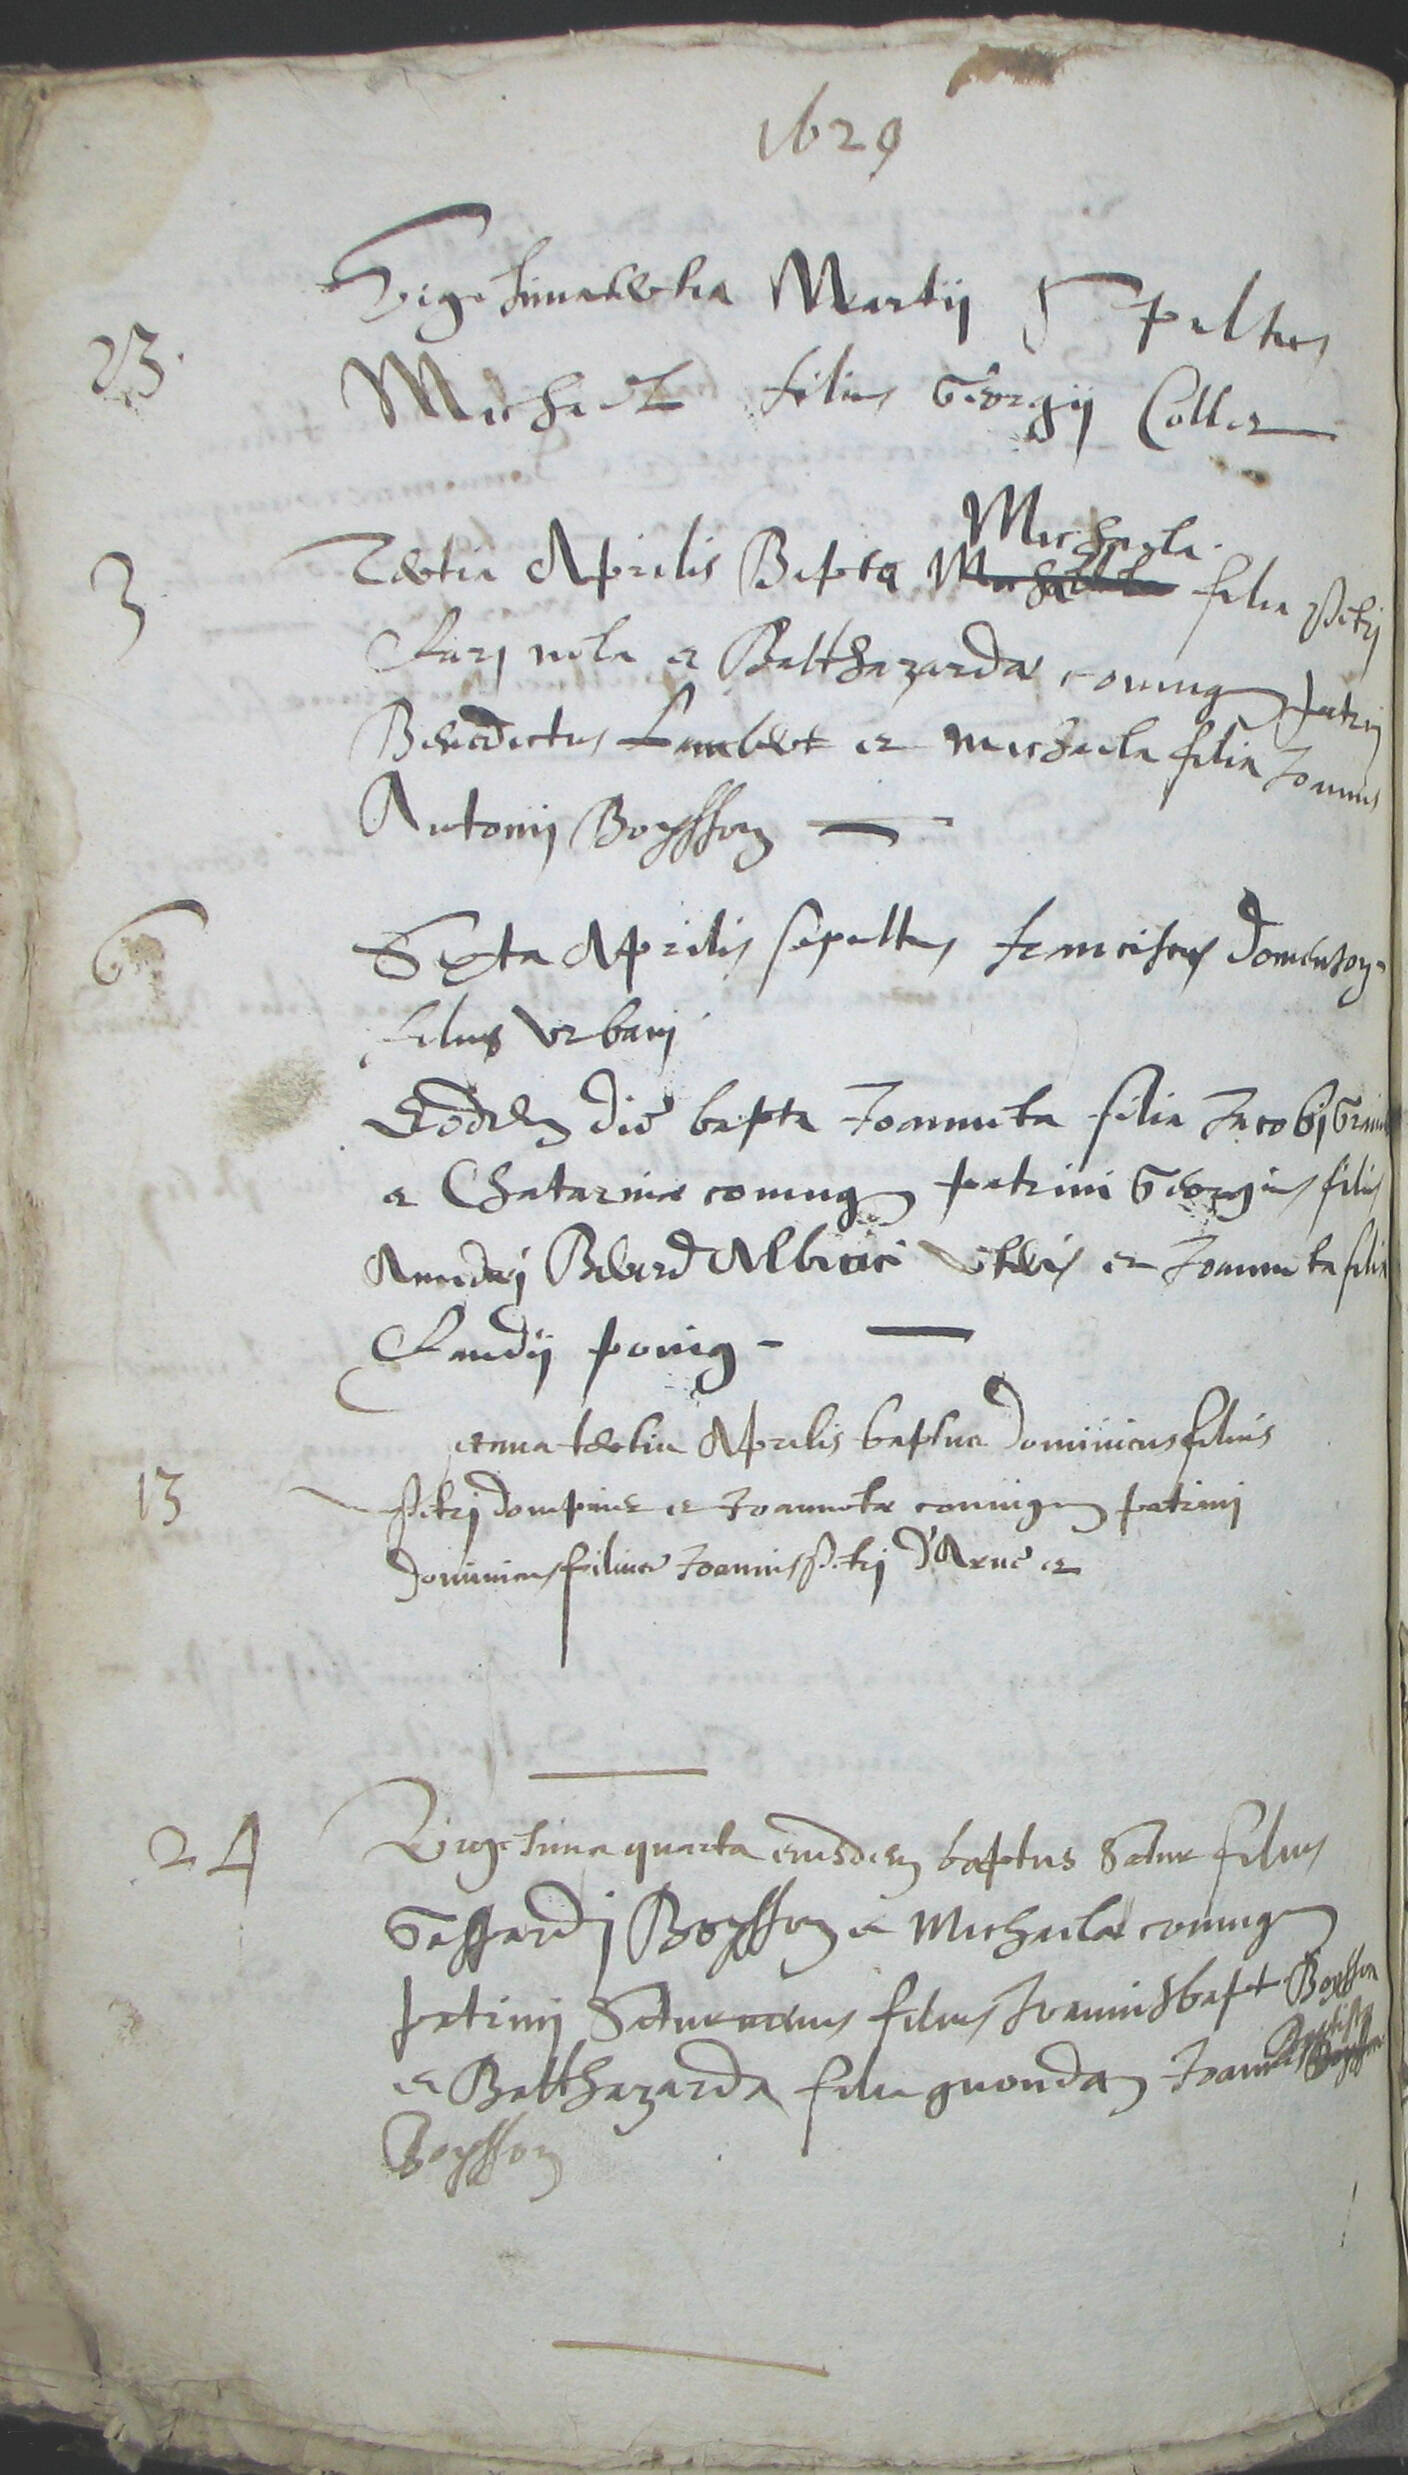 1629
23.
Vigesimatertia Martij Spultus
Michael filius Georgij Coller
3
Michaela
Tertia Aprilis Bapta filia Petri
et Balthazardæ coniug patrini
Benedictus Lambert et Michaela filia Joannis
Antonij Boysson
6
Sexta Aprilis sepultus franciscus Domenson
filius Urbani
Eodem die bapta Joanneta filia Jacobi
et Chatarinæ coniugum patrini Georgius filius
Amedei et Joanneta filia
Claudij
13
tertia Aprilis baptus Dominicus filius
Petri et Joannetæ coniugum patrini
Dominicus filius Joannis Petri d'Arue et
24
Vigesima quarta eiusdem baptus Satur filius
Gaspardj Boysson et Michaelæ coniugum
patrini filius Joannis bapt Boysson
et Balthazarda filia quondam Joannis Baptistæ
Boysson